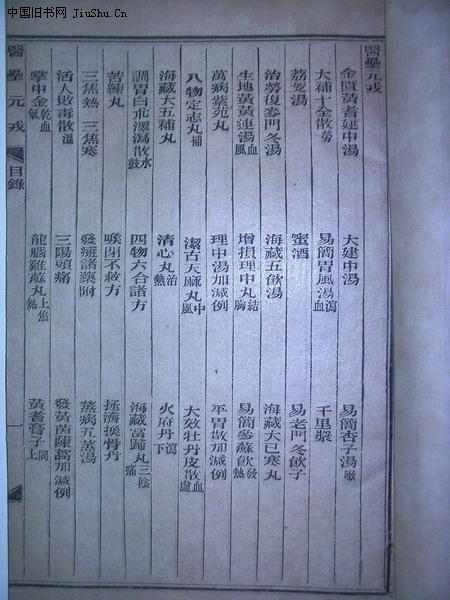 中国旧书网 JiuShu.Cn
醫壘元戎
金匱黃耆建中湯 大建中湯 易簡杏子湯嗽
大補十全散勞 易簡胃風湯瀉血 千里漿
荔枝湯 蜜酒 易老門冬飲子
治勞復麥門冬湯 海藏五飲湯 海藏大已寒丸
生地黃黃連湯血風 增損理中丸結胸 易簡參蘇飲發熱
萬病紫菀丸 理中湯加減例 平胃散加減例
八物定志丸補 潔古天麻丸中風 大效牡丹皮散血虛
海藏大五補丸 清心丸治熱 火府丹瀉下
調胃白朮澤瀉散水鼓 四物六合諸方 海藏當歸丸三陰痛
苦練丸 喉閉不救方 拯濟換骨丹
三焦熱 三焦寒 發斑諸藥附 蒸病五蒸湯
活人敗毒散溫 三陽頭痛 發黃茵陳蒿加減例
掌中金乾血氣 龍腦雞蘇丸上焦熱 黃耆膏子同上
醫壘元戎 目錄 一